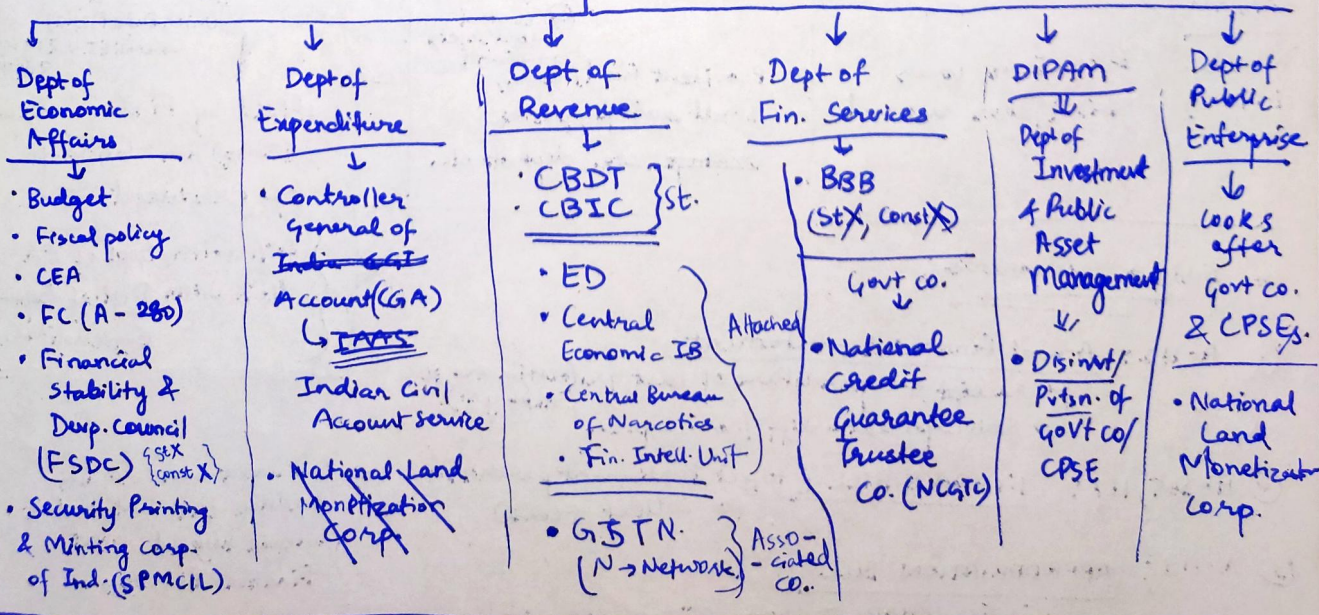 Dept of
Economic
Affairs
• Budget
• Fiscal policy
• CEA
• FC (A - 280)
• Financial
Stability &
Devp. Council
(FSDC) {St X
const X}
• Security Printing
& Minting corp.
of Ind. (SPMCIL)
Dept of
Expenditure
• Controller
General of
India CGI
Account (CGA)
IAAS
Indian Civil
Account Service
• National Land
Monetization
Corp.
Dept of
Revenue
• CBDT
• CBIC } St.
• ED
• Central
Economic IB
• Central Bureau
of Narcotics
• Fin. Intell. Unit
Attached
• GSTN.
(N → Network)
Asso-
-ciated
co.
Dept of
Fin. Services
• BBB
(St X, Const X)
Govt co.
• National
Credit
Guarantee
Trustee
Co. (NCGTC)
DIPAM
Dept of
Investment
& Public
Asset
Management
• Disinvt/
Pvtsn. of
GOVT CO/
CPSE
Dept of
Public
Enterprise
Looks
after
Govt co.
& CPSEs.
• National
Land
Monetization
Corp.